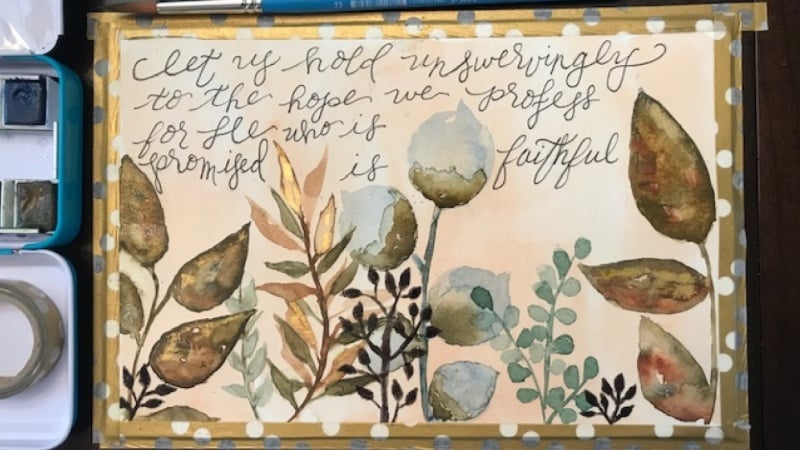 let us hold unswervingly
to the hope we profess
for He who is
promised is faithful